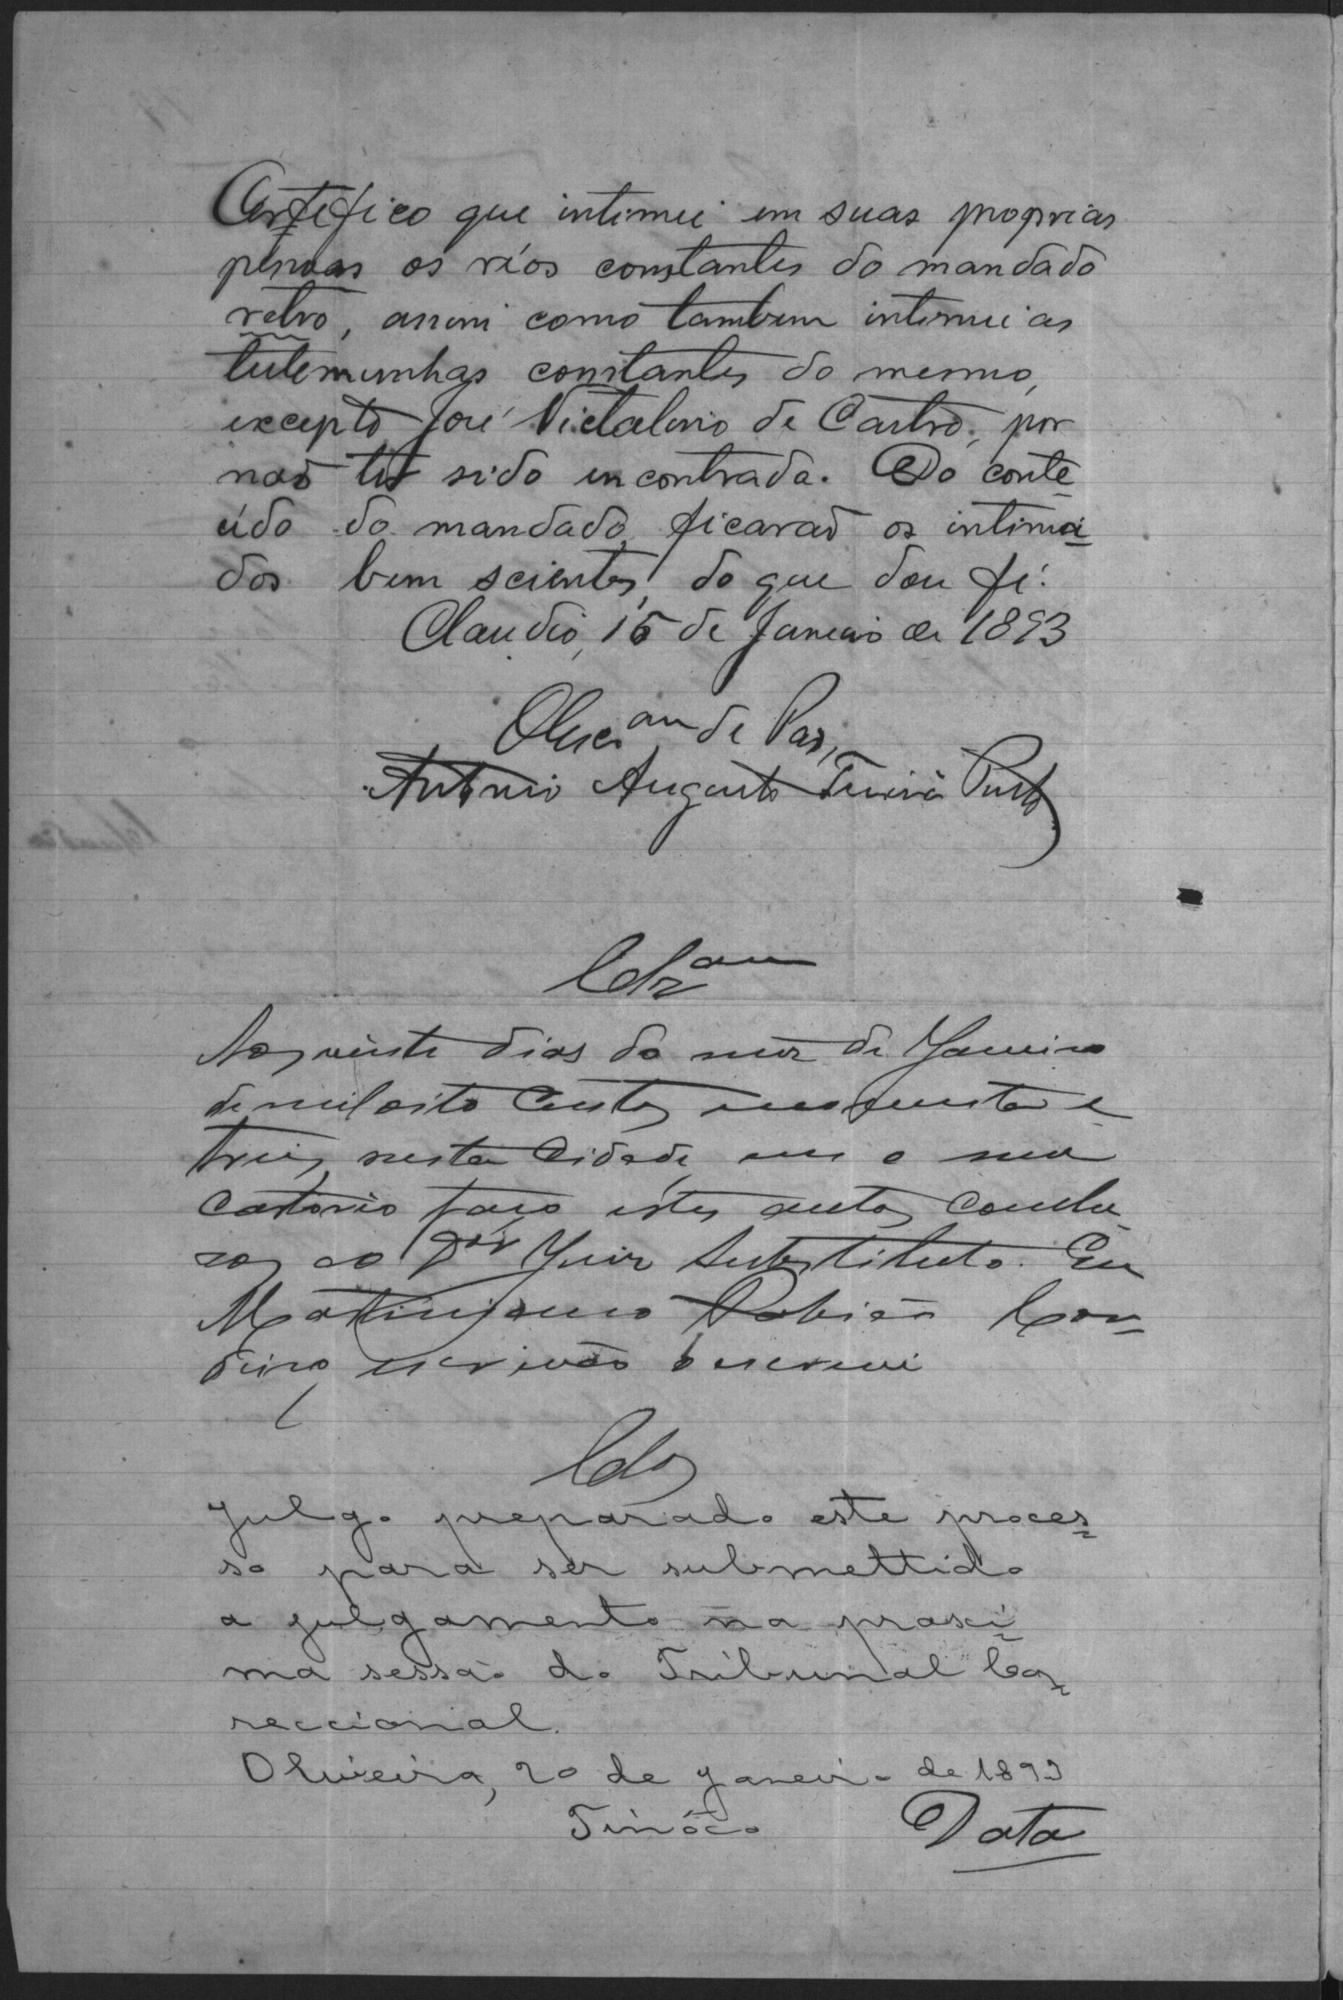 Certefico que intimei em suas proprias
pessoas os réos constantes do mandado
retro, assim como tambem intimei as
testemunhas constantes do mesmo,
excepto José Victalino de Castro, por
naõ ter sido encontrada. Do conte-
údo do mandado, ficaraõ os intima-
dos bem scientes, do que dou fé.
Claudio, 15 de Janeiro de 1893
O Escram de Paz,
Antonio Augusto Teixrª Porto
Clzam
Aos vinte dias do mez de Janeiro
de mil oito centos e noventa e
tres, nesta Cidade, em o meu
cartorio faço estes autos conclu-
zos ao Dor Juiz Substituto. Eu
Martiniano Rabião Cor-
deiro escrivão o escrevi
Clos
Julgo preparado este proces-
so para ser submettido
a julgamento na proxi-
ma sessão do Tribunal Cor-
reccional.
Oliveira, 20 de Janeiro de 1893
Tinôco Data